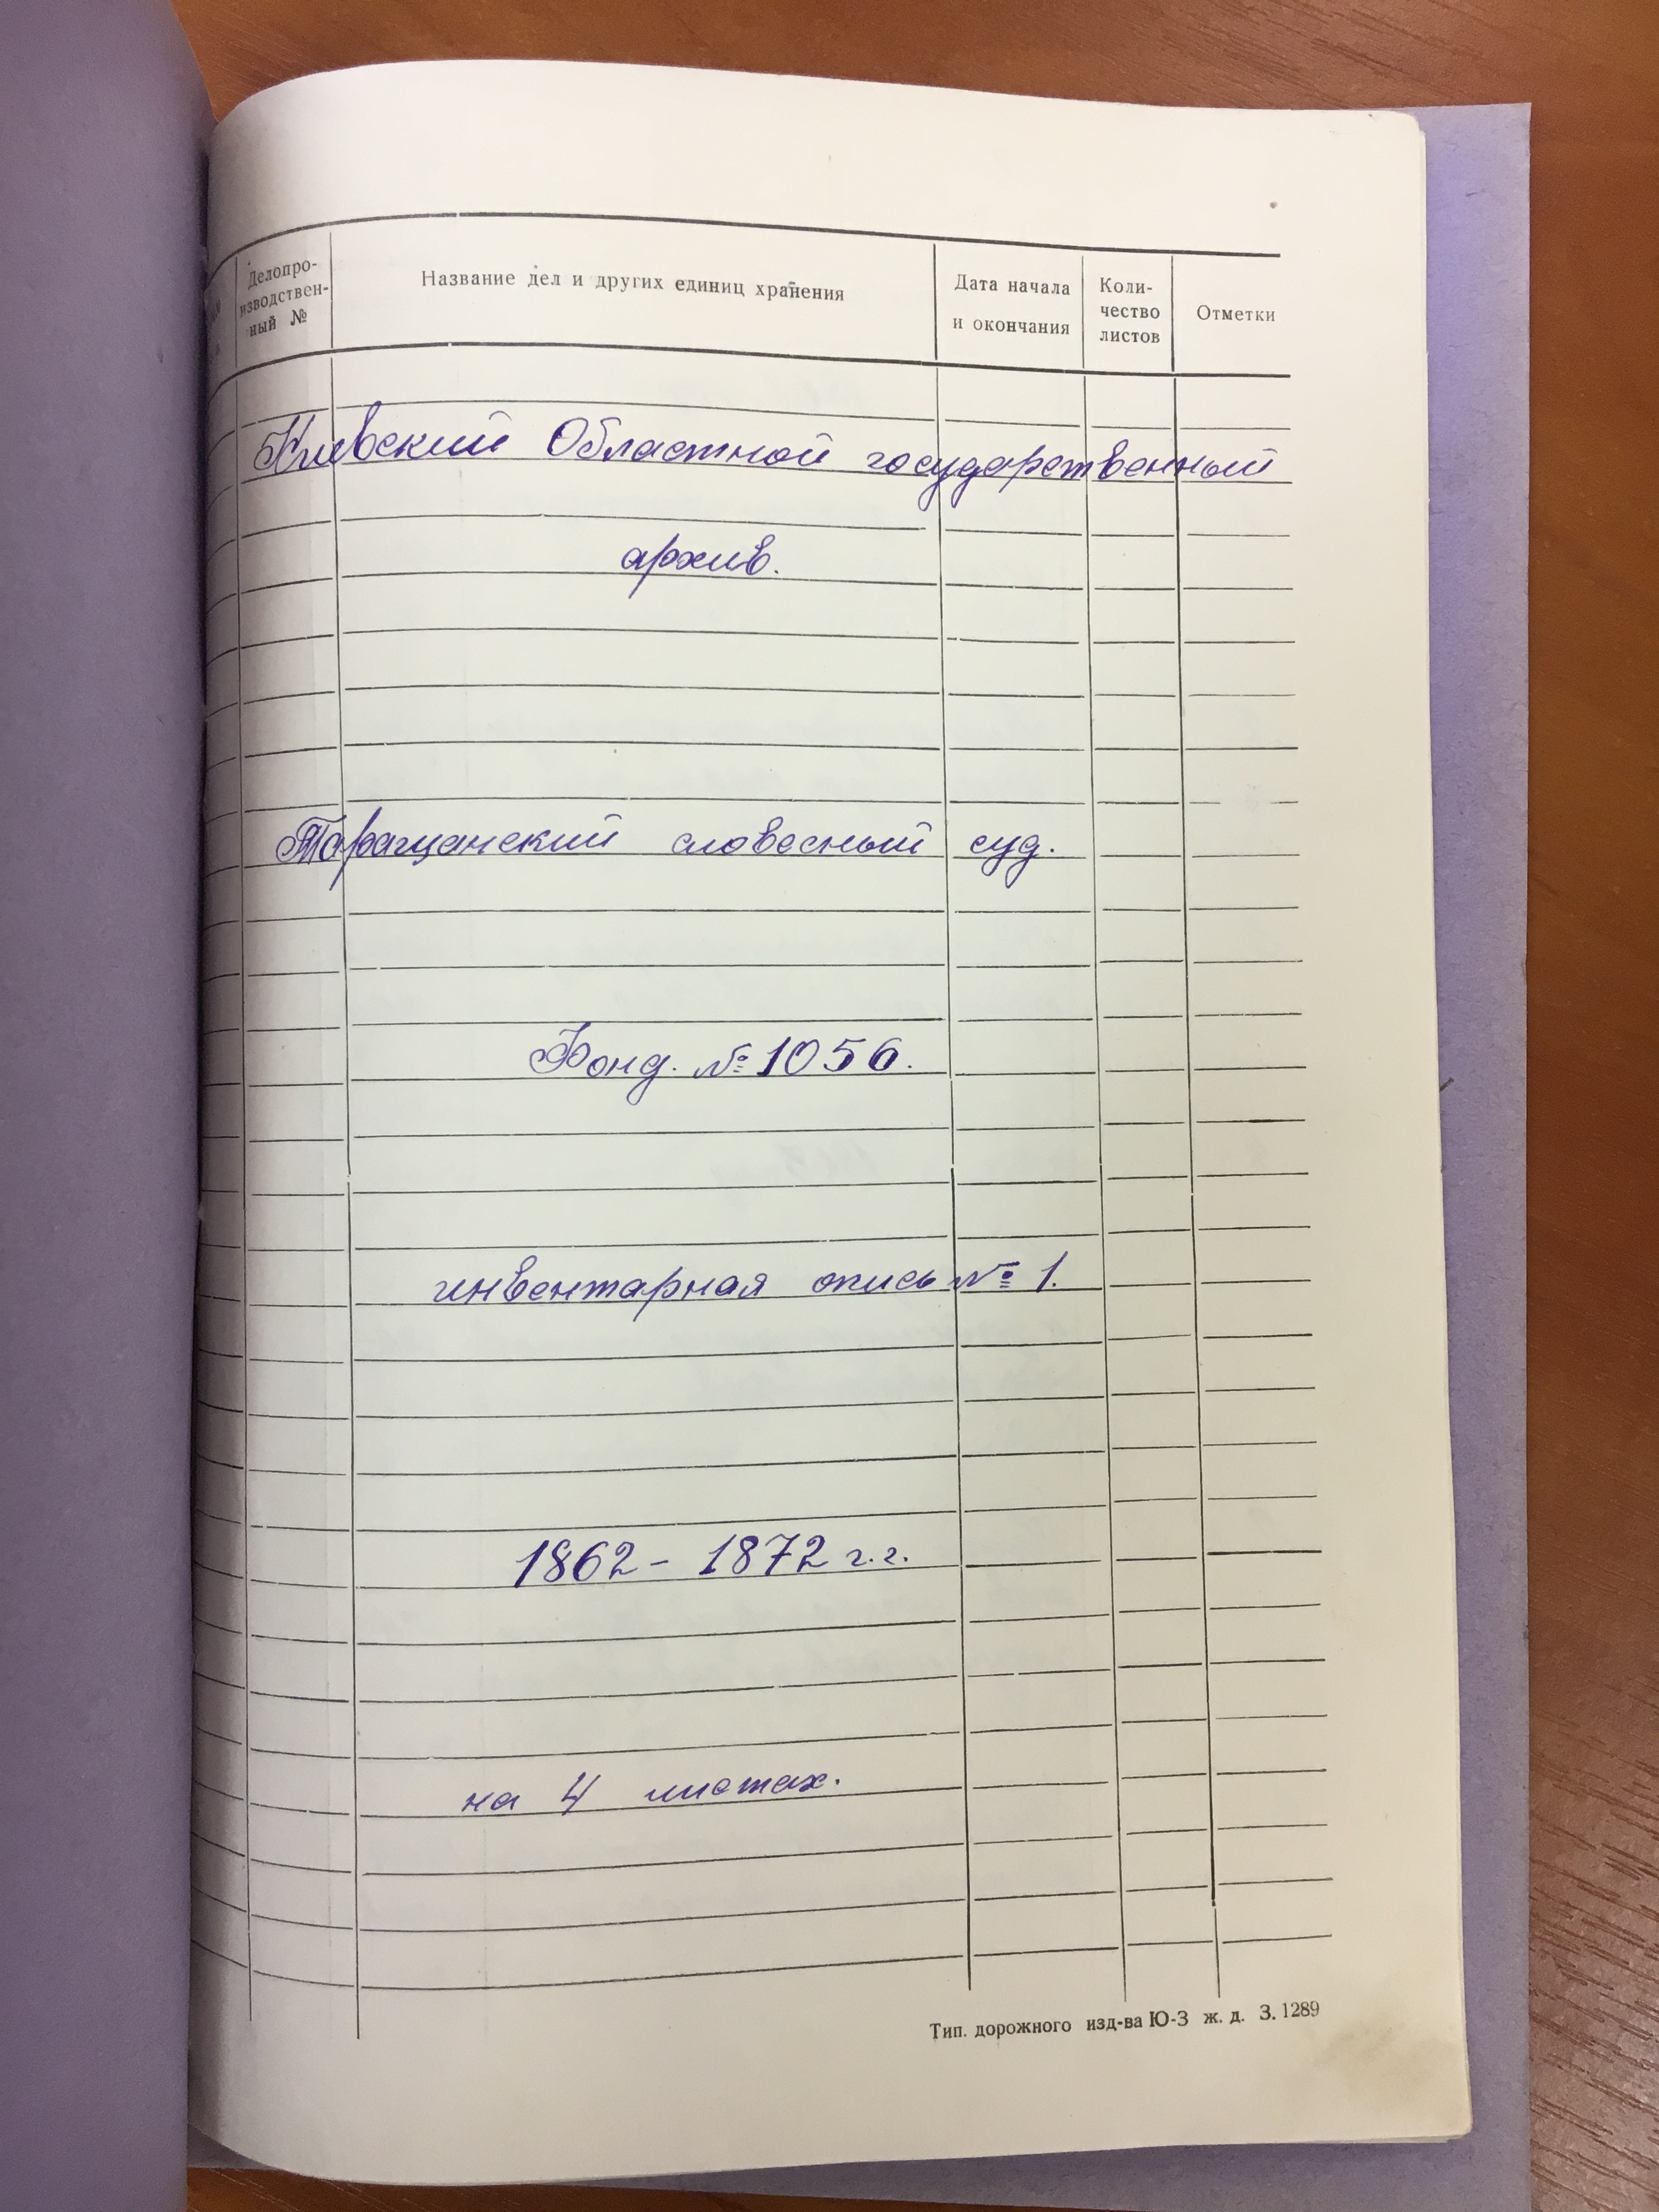 Делопро-
изводствен-
ный №
Название дел и других единиц хранения
Дата начала
и окончания
Коли-
чество
листов
Отметки
Киевский Областной государственный
архив.
Таращанский словесный суд.
Фонд. № 1056.
инвентарная опись № 1.
1862 - 1872 г.г.
на 4 листах.
Тип. дорожного изд-ва Ю-З ж. д. З. 1289